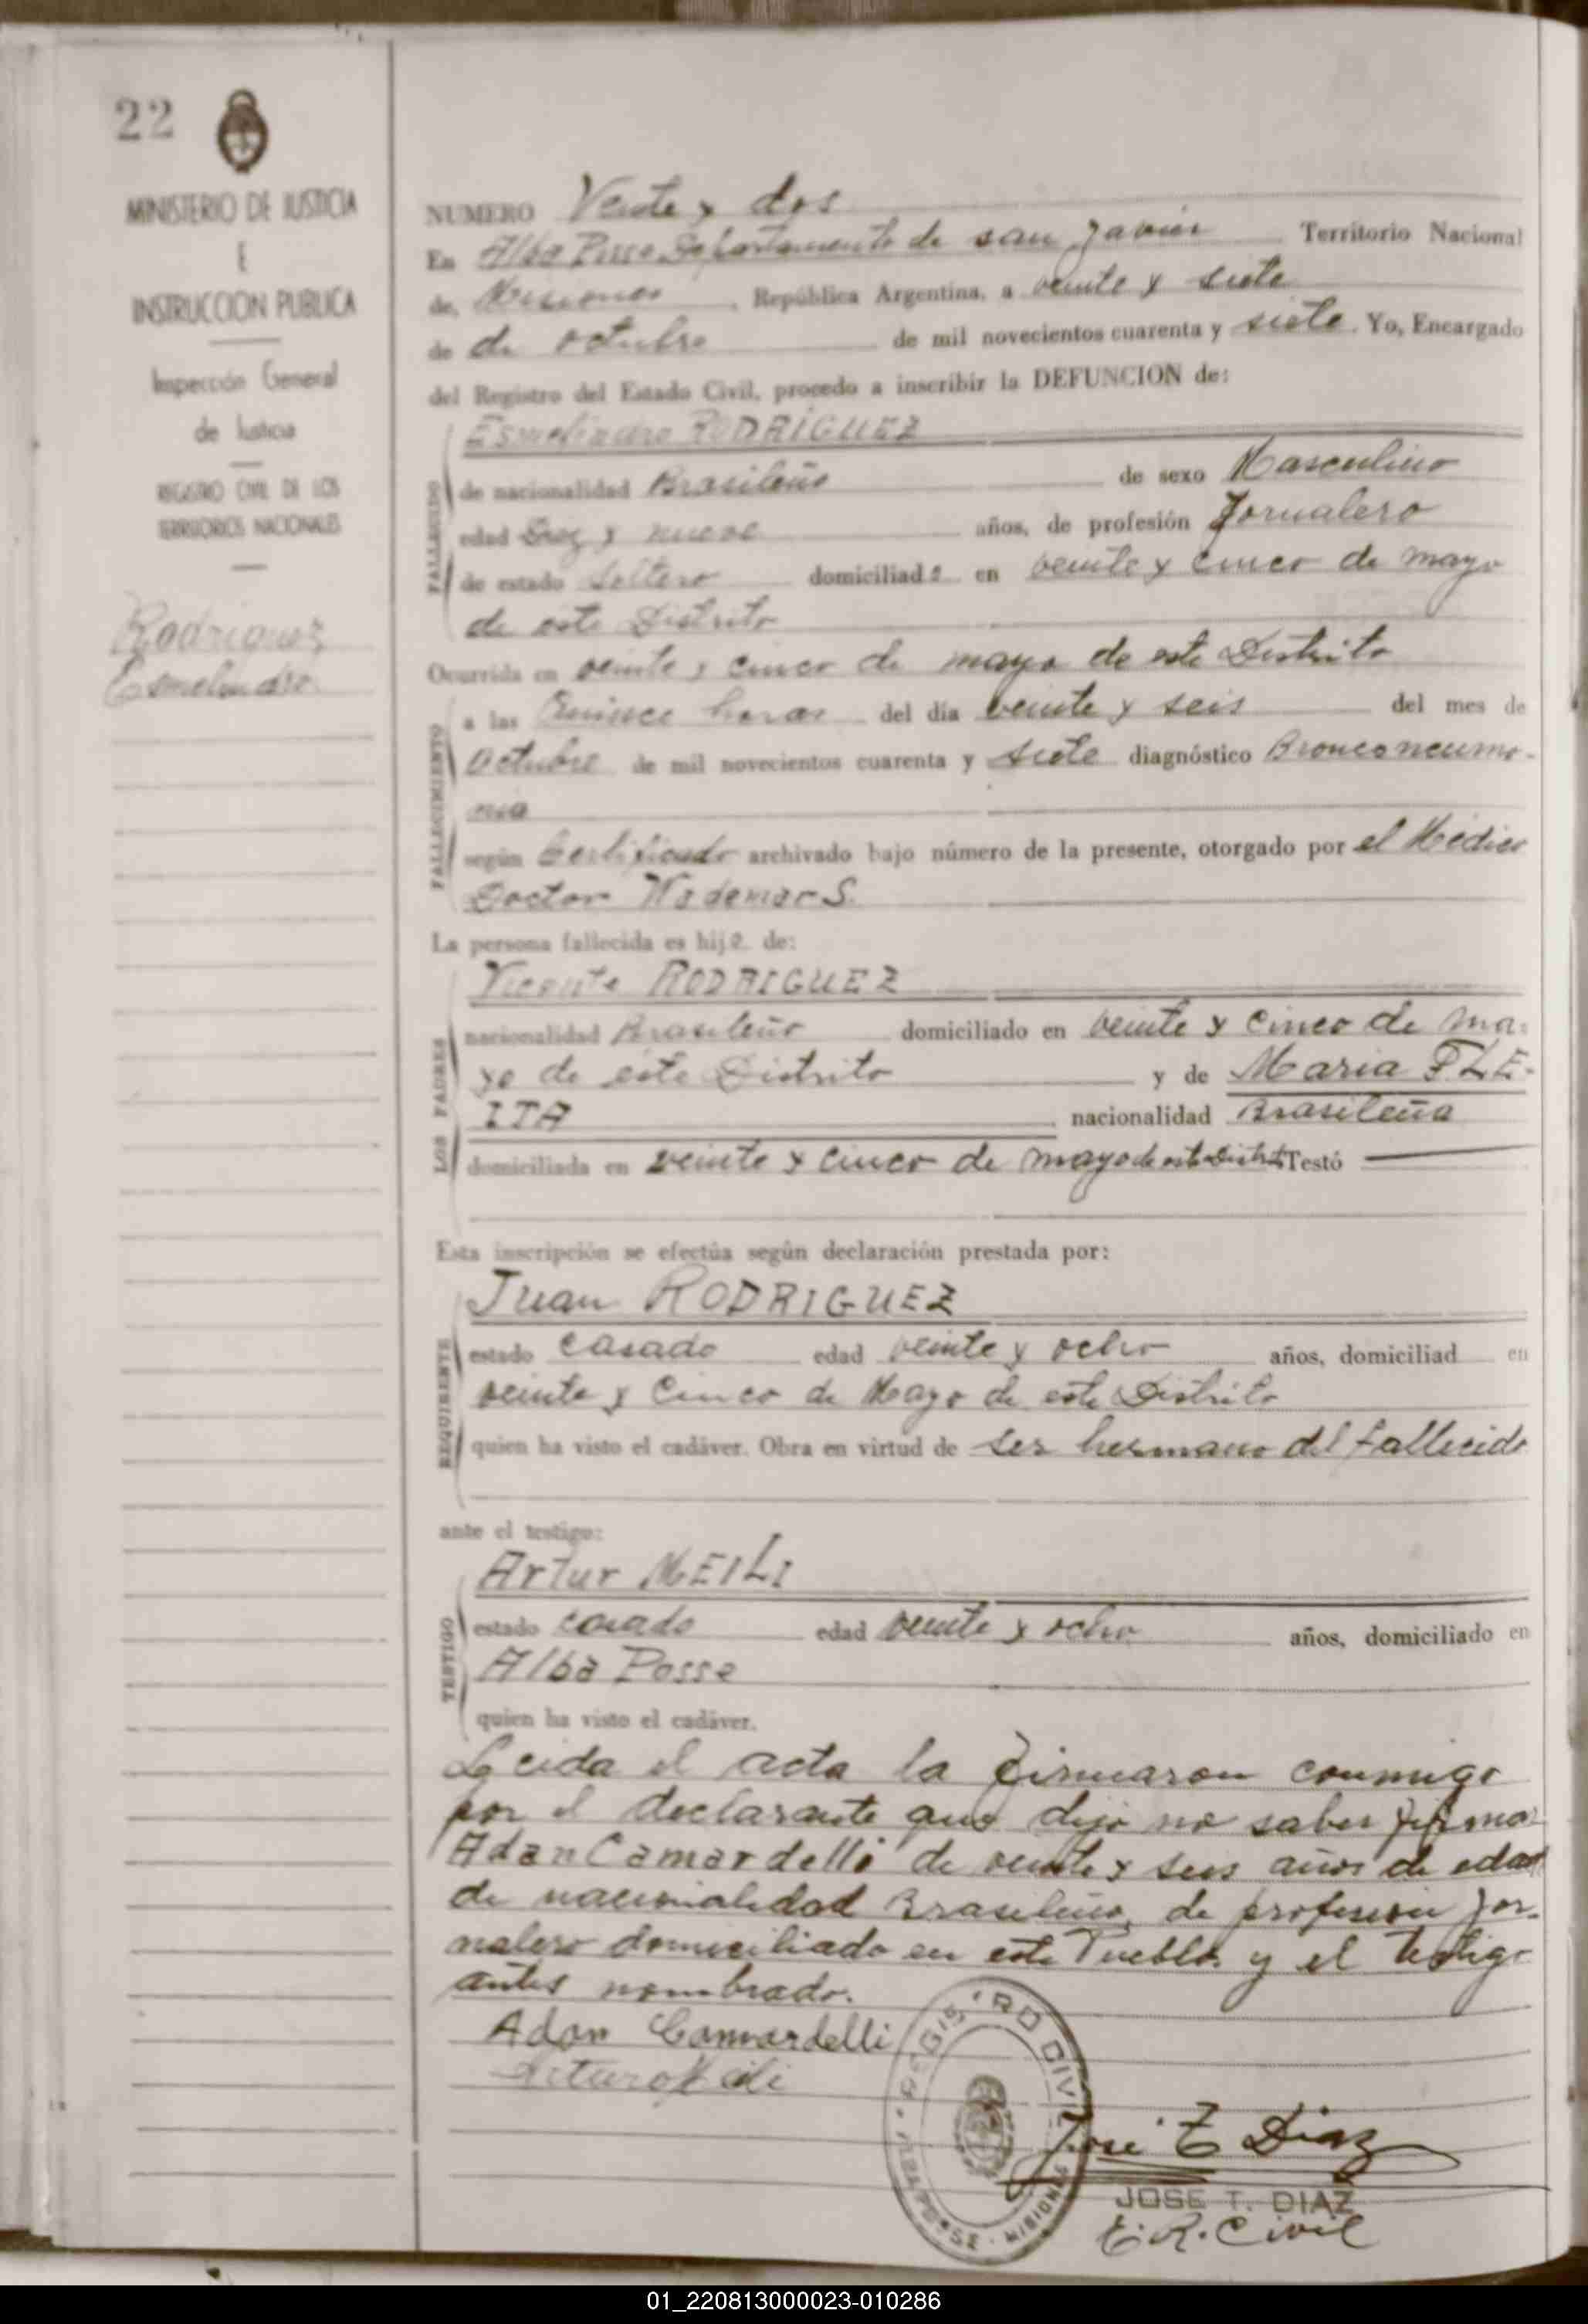 22
MINISTERIO DE JUSTICIA
E
INSTRUCCION PUBLICA
Inspección General
de Justicia
REGISTRO CIVIL DE LOS
TERRITORIOS NACIONALES
Rodriguez
Esmelindro
NUMERO Veinte y dos
En Alba Posse Departamento de san Javier Territorio Nacional
de, Misiones, República Argentina, a veinte y siete
de de octubre de mil novecientos cuarenta y siete. Yo, Encargado
del Registro del Estado Civil, procedo a inscribir la DEFUNCION de:
FALLECIDO
Esmelindro RODRIGUEZ
de nacionalidad Brasileño de sexo Masculino
edad Diez y nueve años, de profesión Jornalero
de estado Soltero domiciliado en veinte y cinco de mayo
de este Distrito
FALLECIMIENTO
Ocurrida en veinte y cinco de mayo de este Distrito
a las Quince horas del día veinte y seis del mes de
Octubre de mil novecientos cuarenta y siete diagnóstico Bronconeumo-
nia
según Certificado archivado bajo número de la presente, otorgado por el Médico
Doctor Wademar S.
La persona fallecida es hijo de:
LOS PADRES
Vicente RODRIGUEZ
nacionalidad Brasileño domiciliado en veinte y cinco de ma-
yo de este Distrito y de Maria FLE-
ITA nacionalidad Brasileña
domiciliada en veinte y cinco de mayo de este Distrito Testó
Esta inscripción se efectúa según declaración prestada por:
REQUIRENTE
Juan RODRIGUEZ
estado casado edad veinte y ocho años, domiciliad en
veinte y cinco de Mayo de este Distrito
quien ha visto el cadáver. Obra en virtud de ser hermano del fallecido
ante el testigo:
TESTIGO
Artur MEILI
estado casado edad veinte y ocho años, domiciliado en
Alba Posse
quien ha visto el cadáver.
Leida el acta la firmaron conmigo
por el declarante que dijo no saber firmar
Adan Camardelli de veinte y seis años de edad
de nacionalidad Brasileño, de profesion jor-
nalero domiciliado en este Pueblo y el testigo
antes nombrado.
Adan Camardelli
Arturo Meili
REGISTRO CIVIL
ALBA POSSE · MISIONES
Jose T Diaz
JOSE T. DIAZ
E. R. Civil
01_220813000023-010286